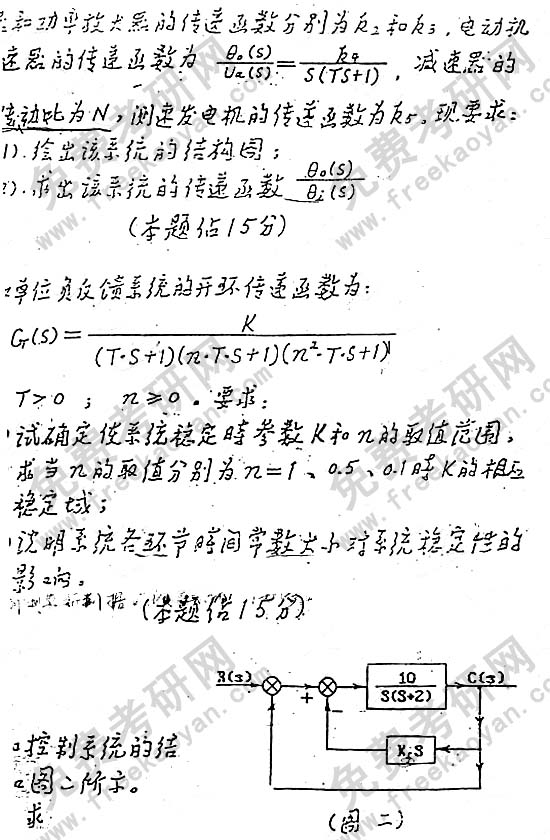 和功率放大器的传递函数分别为k₂和k₃,电动机
速器的传递函数为 θ₀(s)/Ua(s) = k₄/S(TS+1),减速器的
传动比为N,测速发电机的传递函数为k₅。现要求:
1).绘出该系统的结构图;
2).求出该系统的传递函数 θ₀(s)/θᵢ(s)
(本题占15分)
单位负反馈系统的开环传递函数为:
G(S)= K/(T·S+1)(n·T·S+1)(n²·T·S+1)
T>0 ; n≥0 。要求:
试确定使系统稳定時参数K和n的取值范围;
求当n的取值分别为n=1、0.5、0.1時K的相应
稳定域;
说明系统各环节時间常数大小对系统稳定性的
影响。
(本题占15分)
R(s) + − 10/S(S+2) C(s)
KfS
控制系统的结
图二所示。
求
(图二)
免费考研网
www.freekaoyan.com